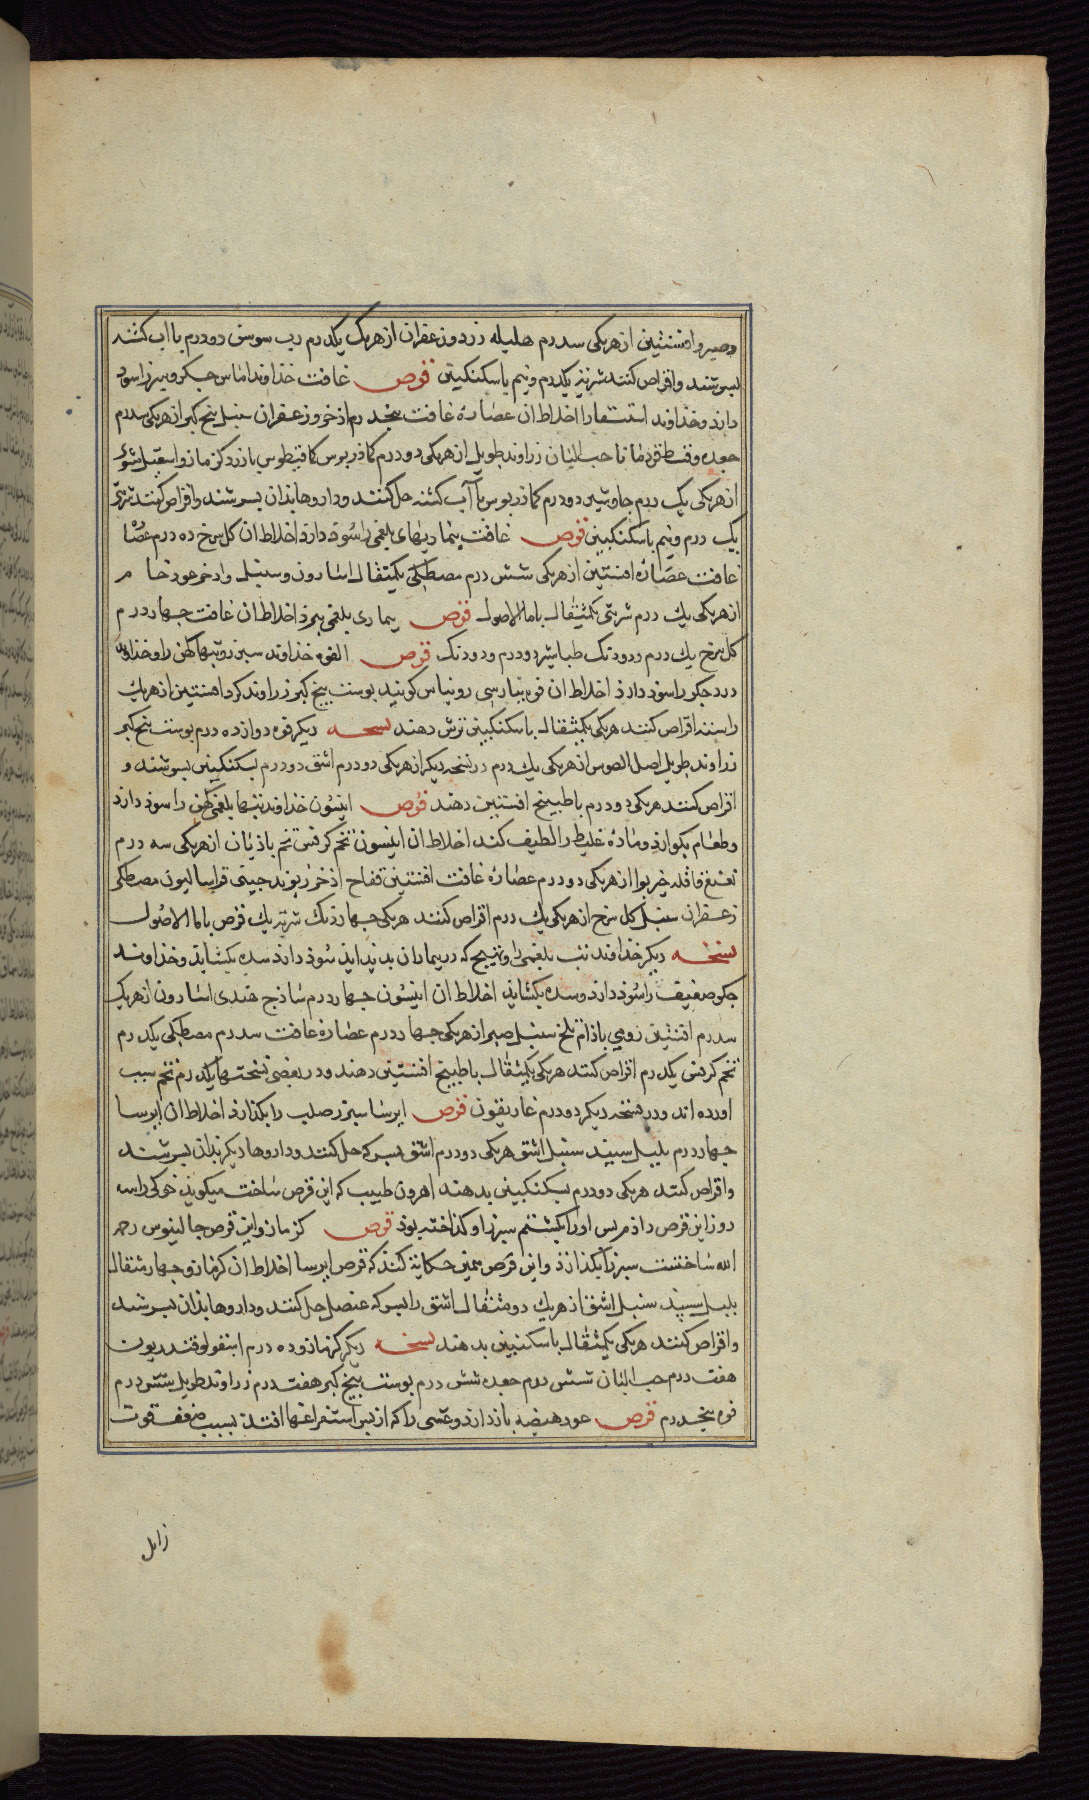 وصبر وافسنتین از هر یکی سه درم هلیله زرد وزعفران از هریک یکدرم رب سوس دودرم با آب کشند
بسرشند واقراص کنند شربتی یکدرم ونیم با سکنکبین قرص غافت خذاوند اماس جکر وسپرز را سوذ
دارذ وخذاوند استسقا را اخلاط ان عصاره غافت پنجدرم اذخر وزعفران سنبل بیخ کبر از هریکی سه درم
جعده وقسط قردمانا حب البان زراوند طویل از هریکی دودرم کماذریوس کمافیطوس بارزد کزمازو اسقیل شوئ
از هریکی یک درم جاوشیر دودرم کماذریوس با آب کشنه حل کنند وداروها بذان بسرشند واقراص کنند شربتی
یک درم ونیم باسکنکبین قرص غافت بیماریهای بلغمی را سوذ دارذ اخلاط ان کل سرخ ده درم عصاره
غافت عصاره افسنتین از هریکی شش درم مصطکی یکمثقال اسارون وسنبل واذخر عود خام
از هریکی یک درم شربتی یکمثقال باما الاصول قرص بیماری بلغمی ببرذ اخلاط ان غافت جهار درم
کل سرخ یک درم ودودنک طباشیر دودرم ودودنک قرص الفوه خذاوند سپرز وتبهاء کهن را وخذاوند
درد جکر را سوذ دارذ اخلاط ان فوه بپارسی روینا س کویند بوست بیخ کبر زراوند کرد افسنتین از هریک
راستا راست اقراص کنند هریکی یکمثقال باسکنکبین ترش دهند نسخه دیکر فوه دوازده درم بوست بیخ کبر
زراوند طویل اصل السوس از هریکی یک درم در نسخه دیکر از هریکی دودرم اشق دودرم بسکنکبین بسرشند و
اقراص کنند هریکی دودرم باطبیخ افسنتین دهند قرص انیسون خذاوند تبها بلغمی کهن را سوذ دارذ
وطعام بکوارذ وماده غلیظ را لطیف کند اخلاط ان انیسون تخم کرفس تخم باذیان از هریکی سه درم
نعنع قاقله خیربوا از هریکی دودرم عصاره غافت افسنتین فقاح اذخر ریوند جینی قراسالیون مصطکی
زعفران سنبل کل سرخ از هریکی یک درم اقراص کنند هریکی جهاردنک شربتی یک قرص باما الاصول
نسخه دیکر خذاوند تب بلغمی را وتهیج که در بیماران بدید اید سوذ دارذ سده بکشاید وخذاوند
جکر ضعیف را سوذ دارذ وسده بکشاید اخلاط ان انیسون جهار درم ساذج هندی اسارون از هریک
سه درم افسنتین رومی باذام تلخ سنبل صبر از هریکی جهار درم عصاره غافت سه درم مصطکی یکدرم
تخم کرفس یکدرم اقراص کنند هریکی یکمثقال باطبیخ افسنتین دهند ودر بعضی نسختها یکدرم تخم سیب
اورده اند ودر نسخه دیکر دودرم غاریقون قرص ایرسا سپرز صلب را بکذازذ اخلاط ان ایرسا
جهار درم بلبل سپید سنبل اشق هریکی دودرم اشق بسرکه حل کنند وداروها دیکر بذان بسرشند
واقراص کنند هریکی دودرم بسکنکبین بدهند اهرون طبیب که این قرص ساخت میکوید خوکی را سه
روز این قرص داذم پس اورا بکشتم سپرز او کذاخته بوذ قرص کزمازو این قرص جالینوس رحمه
الله ساختست سپرز را بکذازذ واین قرص همین حکایت کنند که قرص ایرسا اخلاط ان کزمازو جهار مثقال
بلبل سپید سنبل اشق از هریک دومثقال اشق را بسرکه عنصل حل کنند وداروها بذان بسرشند
واقراص کنند هریکی یکمثقال باسکنبین بدهند نسخه دیکر کزمازو ده درم اسقولوقندریون
هفت درم حب البان شش درم جعده شش درم بوست بیخ کبر هفت درم زراوند طویل شش درم
فوه پنجدرم قرص عود هیضه بازدارذ وغشی را که از پس استفراغها افتد بسبب ضعف قوت
زایل